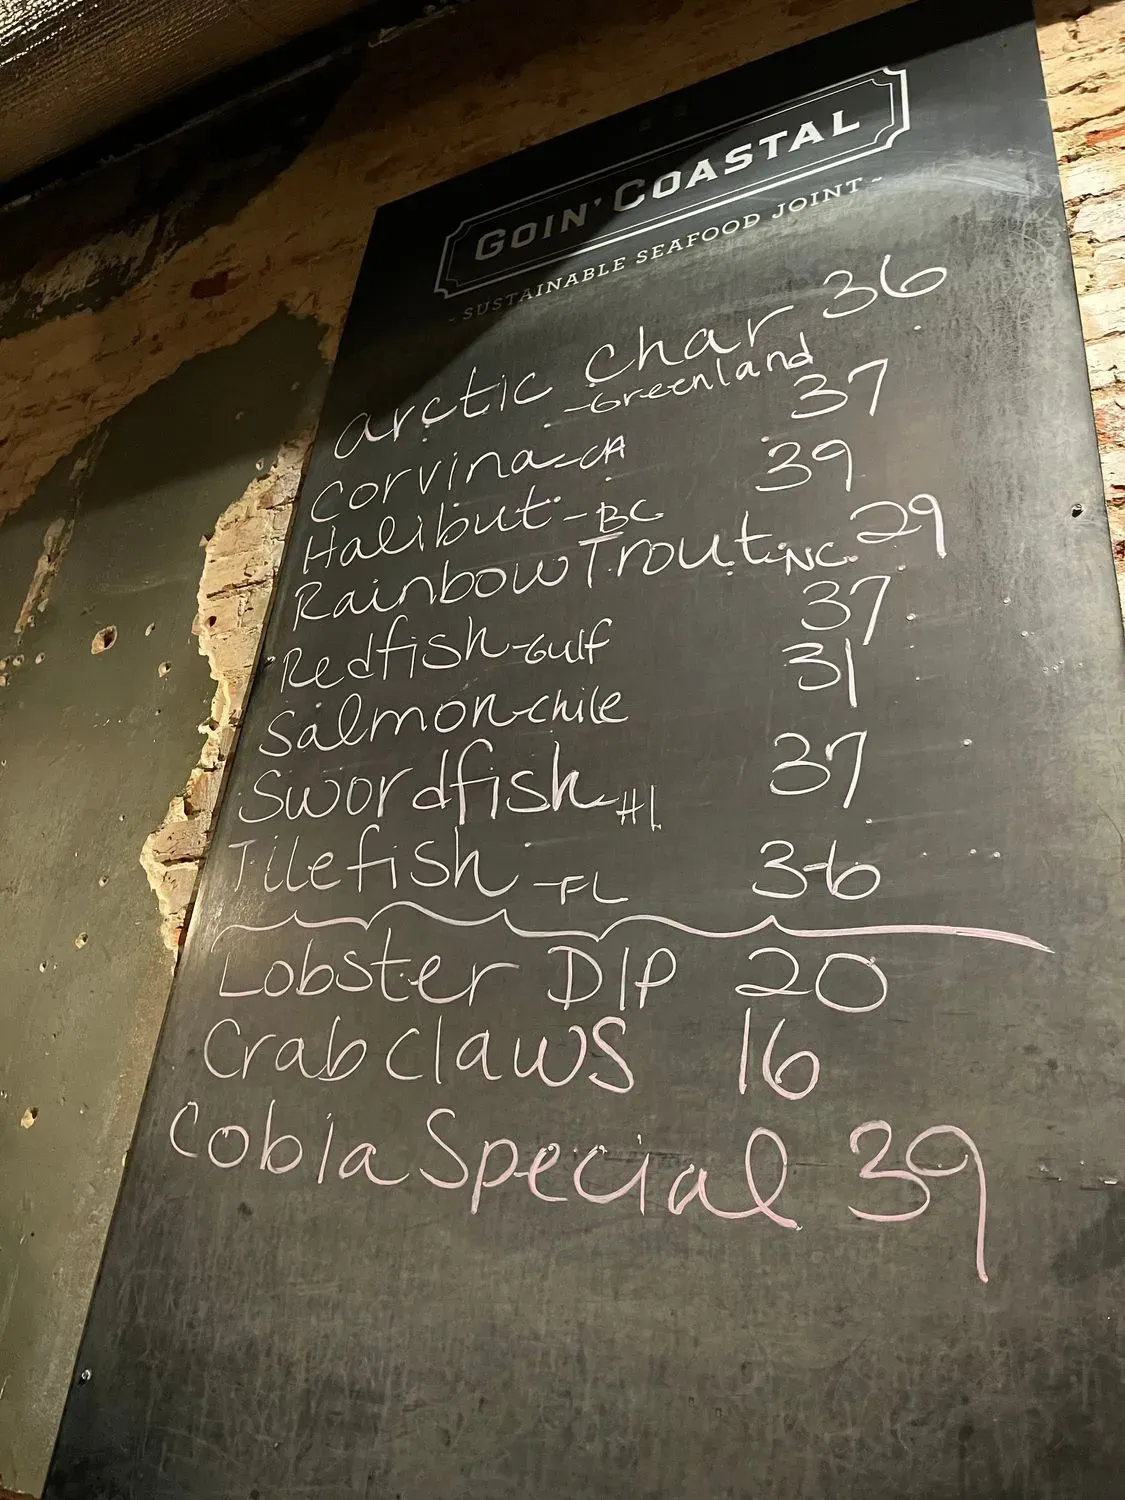 GOIN' COASTAL
- SUSTAINABLE SEAFOOD JOINT -
arctic char 36
- Greenland
Corvina - CA 37
Halibut - BC 39
Rainbow Trout - NC 29
Redfish - Gulf 37
Salmon - Chile 31
Swordfish - HI 37
Tilefish - FL 36
Lobster DIP 20
Crab claws 16
Cobia Special 39